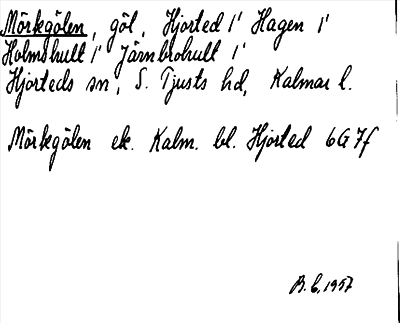 Mörkgölen, göl, Hjorted 1/1 Hagen 1/1
Holmshult 1/1 Järnbrohult 1/1
Hjorteds sn, S. Tjusts hd, Kalmar l.
Mörkgölen ek. Kalm. bl. Hjorted 6G7f
B.C. 1957